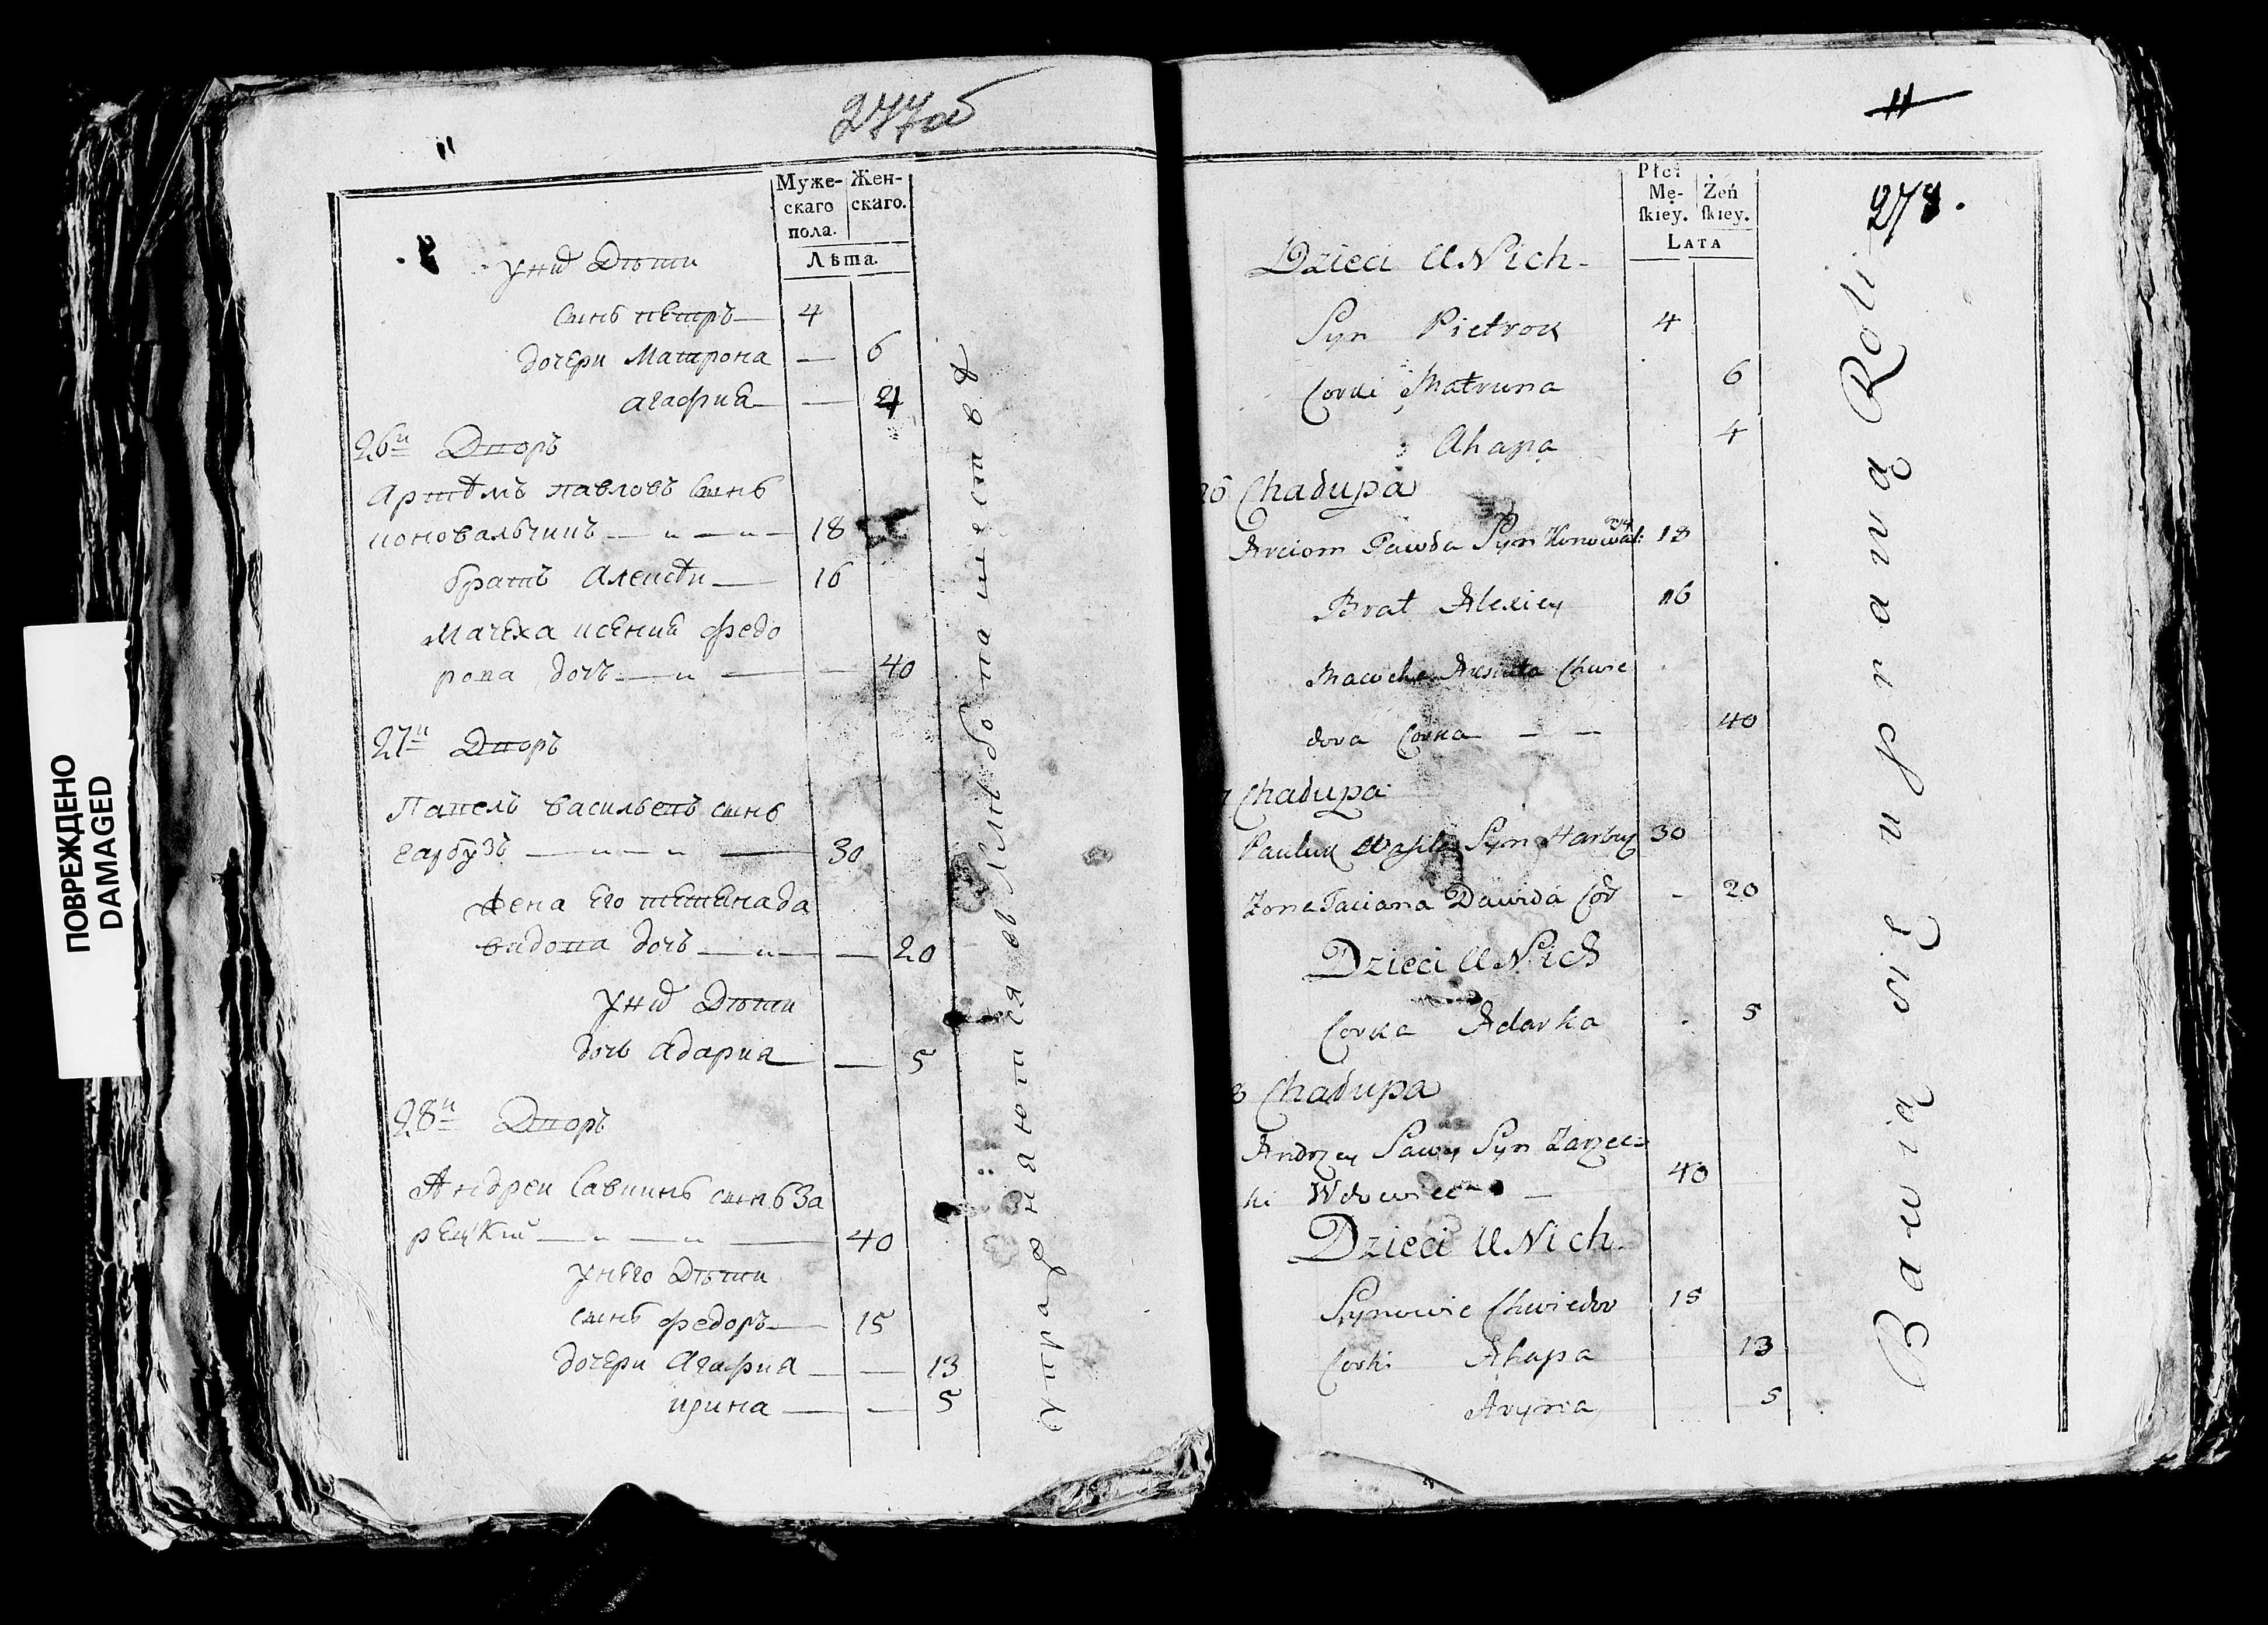 ПОВРЕЖДЕНО
DAMAGED
11
277об
Муже-
скаго
пола.
Жен-
скаго.
Лѣта.
у нихъ Дѣти
сынъ петръ — 4
дочери Матрона — 6
агафия — 4
26й Дворъ
Артѣмъ павловъ сынъ
коновальчикъ — 18
братъ Алексѣй — 16
Мачеха ксения федо
рова дочъ — 40
27й Дворъ
Павелъ васильевъ сынъ
гарбузъ — 30
жена его тетяна да
видова дочъ — 20
у нихъ Дѣти
дочь адария — 5
28й Дворъ
Андреи Савинъ сынъ За
рецкий — 40
у него Дѣти
сынъ федоръ — 15
дочери Агафия — 13
ирина — 5
упражняются в хлѣбопашествѣ
11
278.
Płci
Mę-
ſkiey.
Żeń
ſkiey.
Lata
Dzieci u Nich
Syn Pietrok 4
Corki Matruna 6
Ahapa 4
26 Chałupa
Arciom Pawła Syn Konował: 18
Brat Alexiey 16
Macocha Chwie
dora Corka — — 40
Chałupa
Pauluk Wasila Syn Harbuz 30
Zona Taciana Dawida Cor 20
Dzieci u Nich
Corka Adarka 5
8 Chałupa
Andrzey Sawy Syn Zarzec=
ki Wdowiec — 40
Dzieci u Nich
Synowie Chwiedor 15
Corki Ahapa 13
Aryna 5
Bawią się uprawą Roli